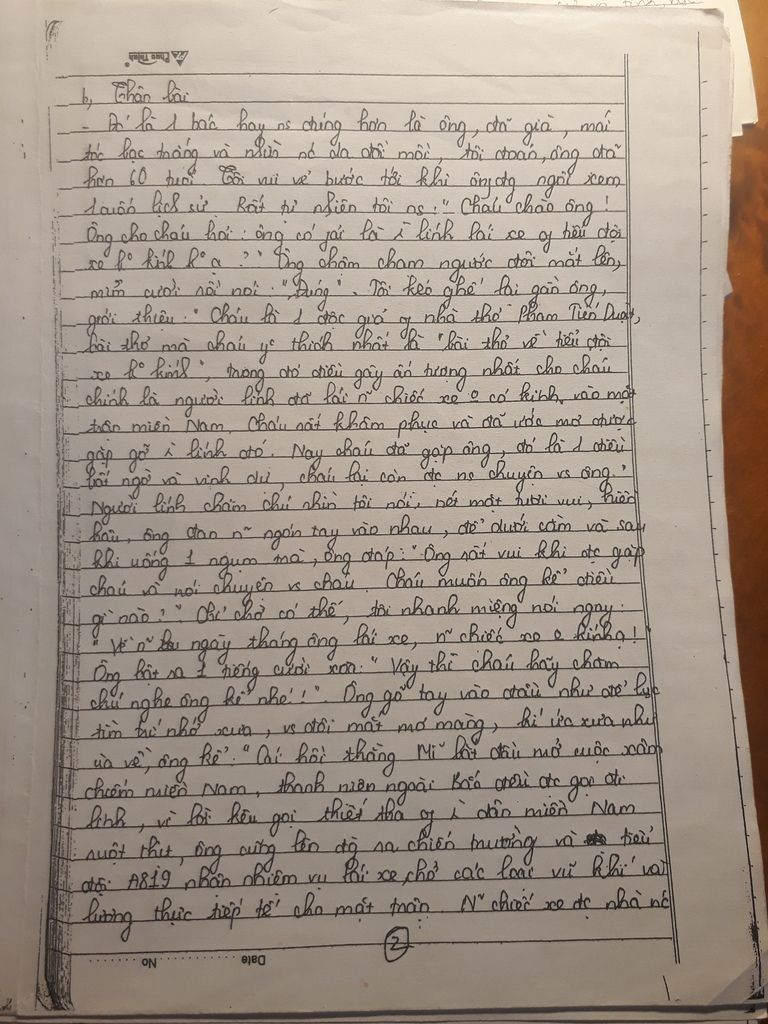 b, Thân bài
- Đó là 1 bác hay ns đúng hơn là ông, đã già, mái
tóc bạc trắng và nhìn nó da đồi mồi, tôi đoán, ông đã
hơn 60 tuổi. Tôi vui vẻ bước tới khi ông đg ngồi xem
1 cuốn lịch sử. Rất tự nhiên tôi ns: "Cháu chào ông!
Ông cho cháu hỏi: ông có fải là lính lái xe of tiểu đội
xe ko kính ko ạ?" Ông chậm chạm ngước đôi mắt lên,
mỉm cười rồi nói: "Đúng". Tôi kéo ghế lại gần ông,
giới thiệu: "Cháu là 1 độc giả of nhà thơ Phạm Tiến Duật,
bài thơ mà cháu yo thích nhất là "bài thơ về tiểu đội
xe ko kính", trong đó điều gây ấn tượng nhất cho cháu
chính là người lính đã lái n~ chiếc xe o có kính vào mặt
trận miền Nam. Cháu rất khâm phục và đã ước mơ được
gặp gỡ lính đó. Nay cháu đã gặp ông, đó là 1 điều
bất ngờ và vinh dự, cháu lại còn đc ns chuyện vs ông."
Người lính chăm chú nhìn tôi nói, nét mặt tươi vui, hiền
hậu, ông đan n~ ngón tay vào nhau, để dưới cằm và sau
khi uống 1 ngụm trà, ông đáp: "Ông rất vui khi đc gặp
cháu và nói chuyện vs cháu. Cháu muốn ông kể điều
gì nào?". Chỉ chờ có thế, tôi nhanh miệng nói ngay:
"Về n~ ngày tháng ông lái xe, n~ chiếc xe o kính ạ!"
Ông bật ra 1 tiếng cười xòa: "Vậy thì cháu hãy chăm
chú nghe ông kể nhé!". Ông gõ tay vào đầu như để lục
tìm trí nhớ xưa, vs đôi mắt mơ màng, kí ức xưa như
ùa về, ông kể: "Cái hồi thằng Mĩ bắt đầu mở cuộc xâm
chiếm miền Nam, thanh niên ngoài Bắc đều đc gọi đi
lính, vì lời kêu gọi thiết tha of dân miền Nam
ruột thịt, ông cũng lên đg ra chiến trường và tiểu
đội A819 nhận nhiệm vụ lái xe, chở các loại vũ khí và
lương thực tiếp tế cho mặt trận. N~ chiếc xe đc nhà nc
2
Date No